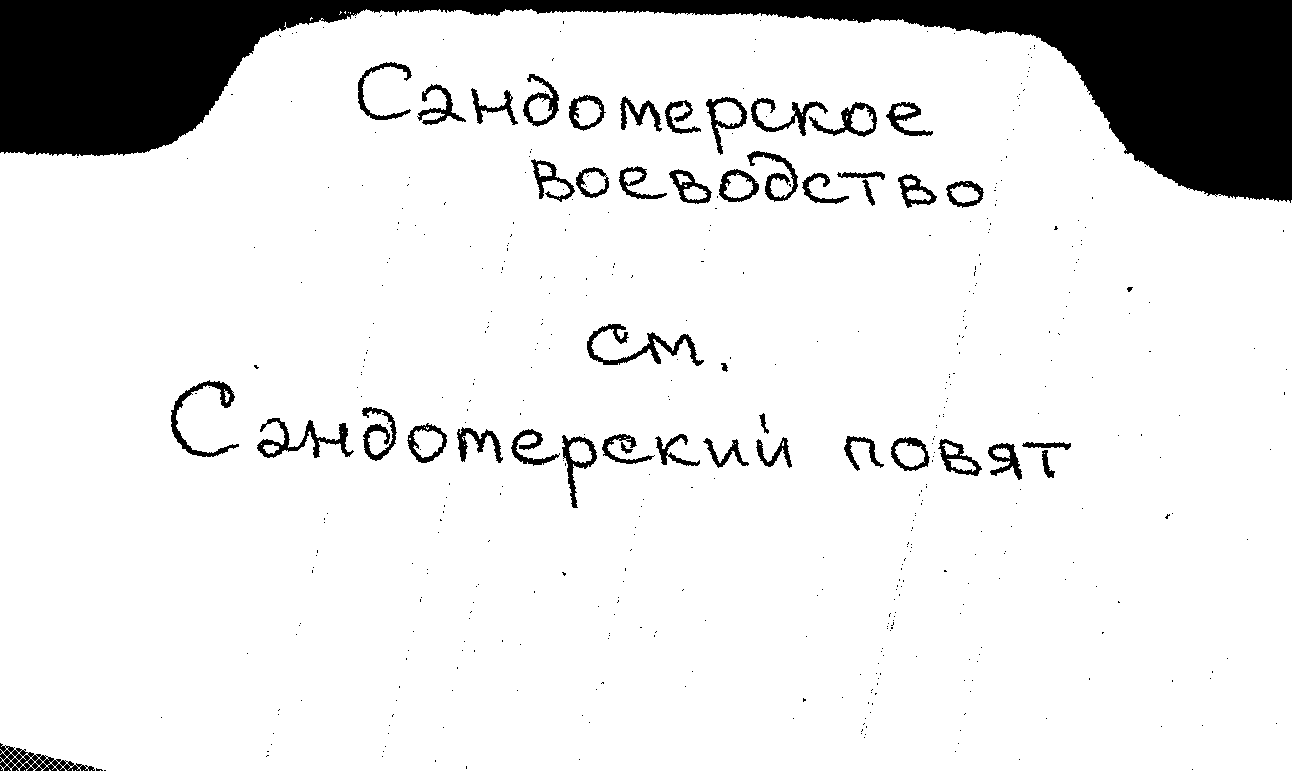 Сандомерское
воеводство
см.
Сандомерский повят